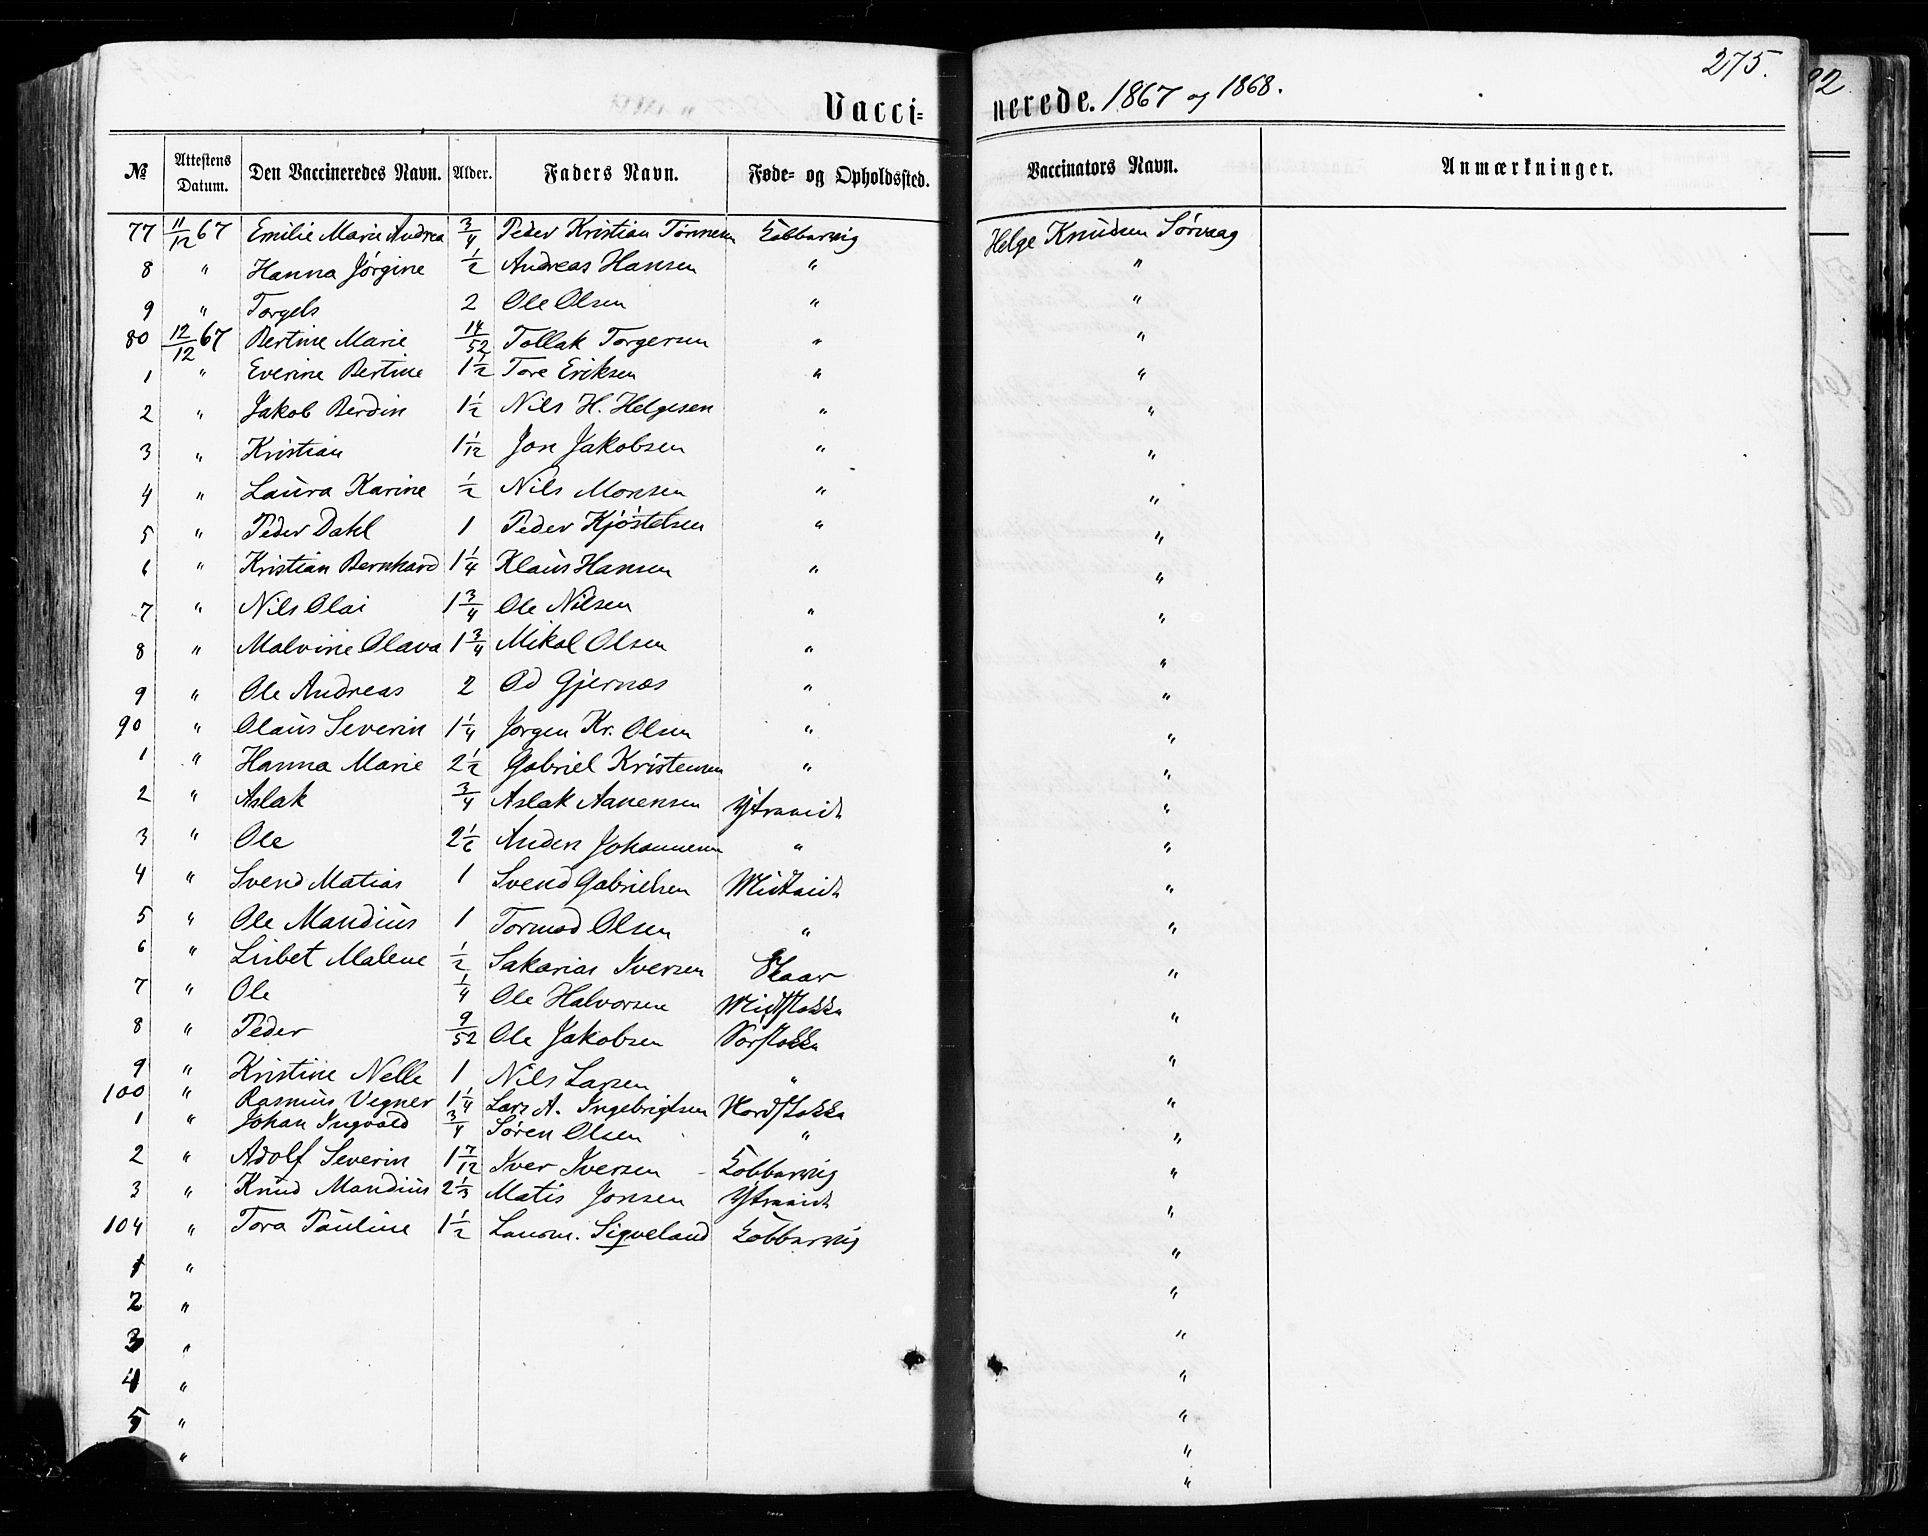 275.
Vacci= nerede. 1867 og 1868.
№ Attestens Datum. Den Vaccineredes Navn. Alder. Faders Navn. Føde= og Opholdssted. Vaccinators Navn. Anmærkninger.
77 11/12 67 Emilie Marie Andrea 3/4 Peder Kristian Tønnesen Kobbarvig Helge Knudsen Sørvaag
8 " Hanna Jørgine 1/2 Andreas Hansen " "
9 " Torgels 2 Ole Olsen " "
80 12/12 67 Bertine Marie 14/52 Tollak Torgersen " "
1 " Everine Bertine 1 1/2 Tore Eriksen " "
2 " Jakob Berdin 1 1/2 Nils H. Helgesen " "
3 " Kristian 1 1/12 Jon Jakobsen " "
4 " Laura Karine 1/2 Nils Monsen " "
5 " Peder Dahl 1 Peder Kjøstelsen " "
6 " Kristian Bernhard 1 1/4 Klaus Hansen " "
7 " Nils Olai 1 3/4 Ole Nilsen " "
8 " Malvine Olava 1 3/4 Mikal Olsen " "
9 " Ole Andreas 2 Od Gjernæs " "
90 " Olaus Severin 1 1/4 Jørgen Kr. Olsen " "
1 " Hanna Marie 2 1/2 Gabriel Kristensen " "
2 " Aslak 3/4 Aslak Aanensen Ytraeide "
3 " Ole 2 1/6 Anders Johannesen " "
4 " Svend Matias 1 Svend Gabrielsen Midtheide "
5 " Ole Mandius 1 Tormod Olsen " "
6 " Lisbet Malene 1/2 Sakarias Iversen Skaar "
7 " Ole 1/4 Ole Halvorsen Midtstokka "
8 " Peder 9/52 Ole Jakobsen Sørstokka "
9 " Kristine Nelle 1 Nils Larsen " "
100 " Rasmus Vegner 1 1/4 Lars A. Ingebrigtsen Nordstokka "
1 " Johan Ingvald 3/4 Søren Olsen " "
2 " Adolf Severin 1 7/12 Iver Iversen Kobbarvig "
3 " Knud Mandius 2 1/3 Matis Jonsen Ytraeide "
104 " Tora Pauline 1 1/2 Sigveland Kobbarvig "
1 " "
2 " "
3 " "
4 " "
5 " "
" "